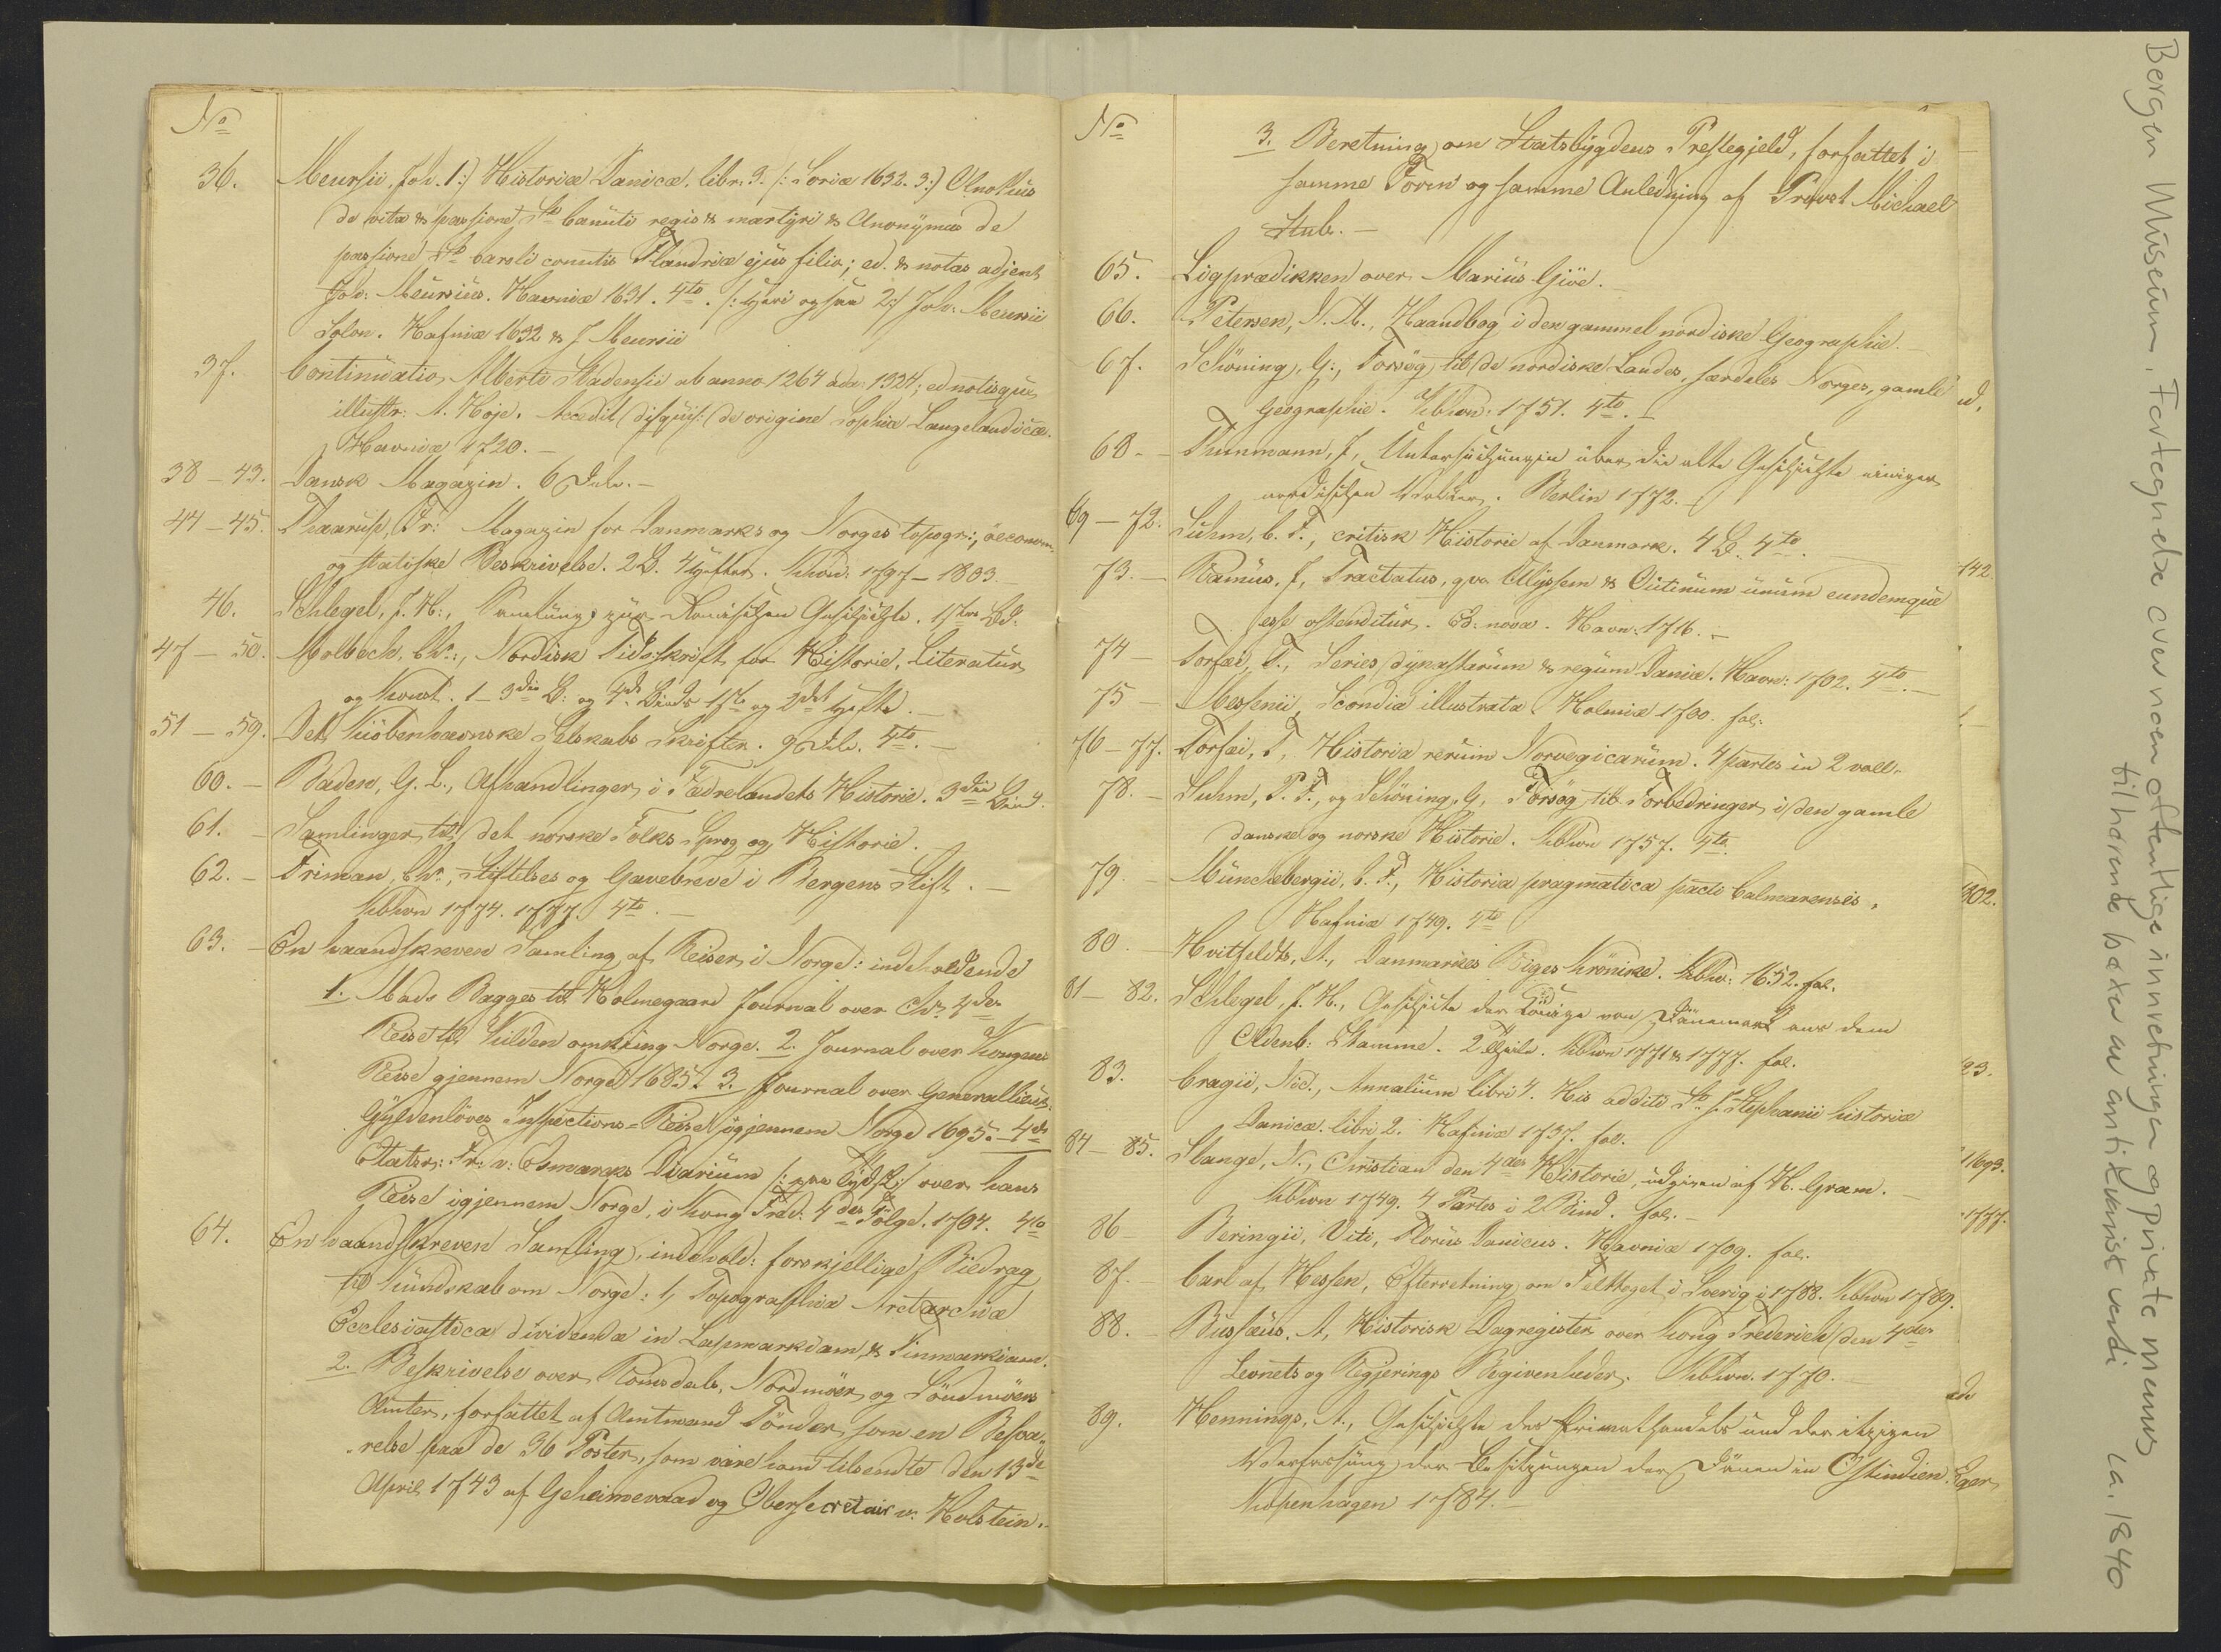 No
36. Meursii, Joh. 1:) Historiæ Danicæ, libr. 3. /: Soriæ 1632. 3:) Ælnothus
de vita & passione Sti Canuti regis & martyri & Anonymus de
passione Sti Caroli comitis Flandriæ ejus filio; ed. & notas adjecit
Joh: Meursius. Havniæ 1631. 4to. /: heri ogsaa 2:/ Joh: Meursii
Solon. Hafniæ 1632 & J. Meursii
37. Continuatio Alberti Stadensis ab anno 1264 ad a: 1324; ed notisque
illustr: A. Höje. Accedit disquis: de origine Sophiæ Langelandicæ.
Havniæ 1720. —
38 – 43. Dansk Magazin. 6 Dele. —
44 – 45. Thaarup, Fr: Magazin for Danmarks og Norges topogr:, oeconom:
og statiske Beskrivelse. 2 B. 4 Hefter. Kbhvn: 1797 – 1803. —
46. Schlegel, J. H:, Samlung zur Dänischen Geschichte. 1ster Bd.
47 – 50. Molbech, Chr:, Nordisk Tidsskrift for Historie, Literatur
og Konst. 1 – 3die B: og 4de Binds 1ste og 2det Hefte. —
51 – 59. Det Kiöbenhavnske Selskabs Skrifter. 9 Dele. 4to. —
60. – Baden, G. L., Afhandlinger i Fædrelandets Historie. 3die Bind.
61. – Samlinger til det norske Folks Sprog og Historie. —
62. – Friman, Chr., Stiftelses og Gavebreve i Bergens Stift. —
Kbhvn 1774. 1777. 4to. —
63. – En haandskreven Samling af Reiser i Norge: indeholdende
1. Mads Bagges til Holmegaard Journal over Chr. 4des
Reise til Kilden omkring Norge. 2. Journal over Kongens
Reise gjennem Norge 1685. 3. Journal over Generallieut:
Gyldenlöves Inspections-Reise igjennem Norge 1695. – 4de
Etatsr: Fr: v: Esmarchs Diarium /: paa Tydsk:/ over hans
Reise igjennem Norge, i Kong Fred: 4des Fölge. 1704. 4to
64. En haandskreven Samling, indehold: forskjellige Bidrag
til Kundskab om Norge: 1, Topographia Arctarchia
Ecclesiastica dividenda in Lapmarkiam & Finmarkiam.
2. Beskrivelse over Romsdals, Nordmöers og Söndmöers
Amter, forfattet af Amtmand Tönder som en Besva-
relse paa de 36 Poster, som vare ham tilsendte den 13de
April 1743 af Geheimeraad og Obersecretair v. Holstein.
No
3. Beretning om Statsbygdens Præstegjeld, forfattet i
samme Form og samme Anledning af Provst Michael
Stub. —
65. Ligprædikken over Marius Giöe.
66. Petersen, N. M., Haandbog i den gammel nordiske Geographie. —
67. Schöning, G:, Forsög til de nordiske Landes, særdeles Norges, gamle
Geographie. Kbhvn: 1751. 4to. —
68 – Thunmann, J, Untersuchungen über die alte Geschichte einiger
nordischen Völker. Berlin 1772. —
69 – 72. Suhm, P. F., critisk Historie af Danmark. 4 B. 4to. —
73. – Ramus, J, Tractatus, qvo Ulyssem & Outinum unum eundemque
esse ostenditur. Ed: nova. Havn: 1716. —
74 – Torfæi, T., Series dynastarum & regum Daniæ. Havn: 1702. 4to. —
75 – Messenii, Scondia illustrata. Holmiæ 1700. fol:
76 – 77. Torfæi, T, Historia rerum Norvegicarum. 4 partes in 2 voll.
78. – Suhm, P. F., og Schöning, G, Forsög til Forbedringer i den gamle
danske og norske Historie. Kbhvn 1757. 4to.
79. – Münchebergii, C. F., Historia pragmatica pacti Calmarensis,
Hafniæ 1749. 4to
80. – Hvitfeldts, A., Danmarkes Riges Krönike. Kbhv: 1652. fol.
81 – 82. Schlegel, J. H., Geschichte der Könige von Dänemark aus dem
Oldenb: Stamme. 2 Theile. Kbhvn 1771 & 1777. fol.
83. Cragii, Nic., Annalium libri 4. His additi St. J. Stephanii historiæ
Danicæ libri 2. Hafniæ 1737. fol.
84 – 85. Slange, N., Christian den 4des Historie, udgiven af H. Gram. —
Kbhvn 1749. 4 Partes i 2 Bind. fol. —
86 Beringii, Viti, Florus Danicus. Havniæ 1709. fol.
87. – Carl af Hessen, Efterretning om Felttoget i Sverig i 1788. Kbhvn 1789.
88. – Bussæus, A, Historisk Dagregister over Kong Friderich den 4des
Levnets og Regjerings Begivenheder. Kbhvn. 1770. —
89. Hennings, A., Geschichte des Privathandels und der itzigen
Verfassung der Besitzungen der Dänen in Ostindien.
Kopenhagen 1784. —
d.
742.
802.
23.
1693.
1777.
Eger
Bergen Museum, Fortegnelse over noen offentlige innretninger og private menns
tilhørende bøker av antikvarisk verdi ca. 1840